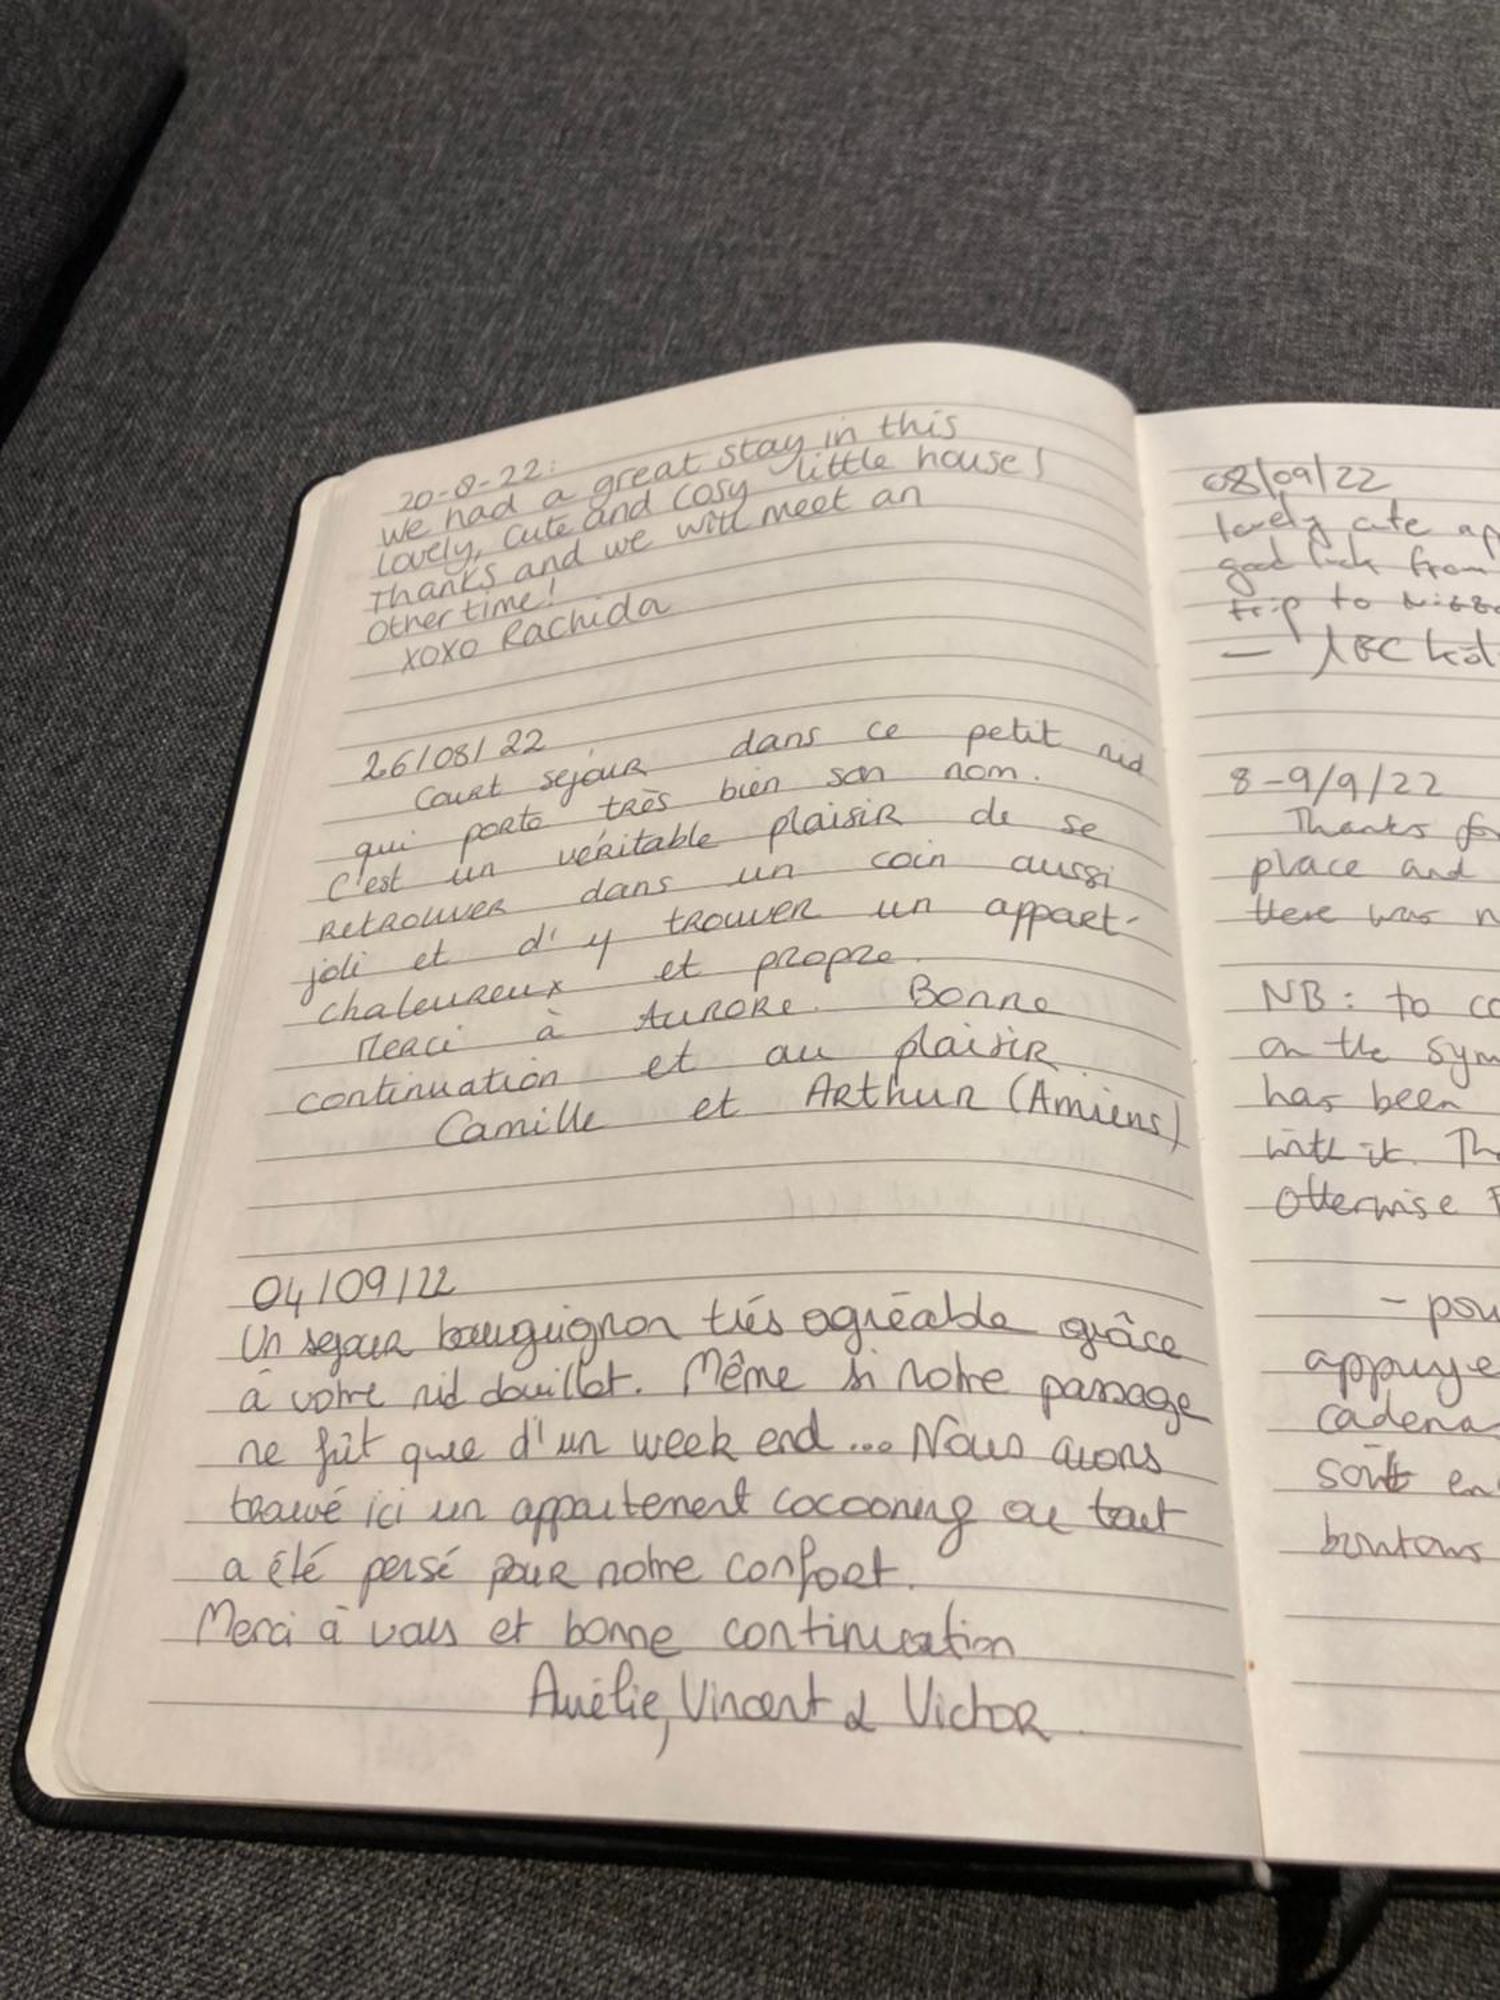 20-8-22:
we had a great stay in this
lovely, cute and cosy little house!
Thanks and we will meet an
other time!
xoxo Rachida
26/08/22
Court sejour dans ce petit nid
qui porte très bien son nom.
C'est un véritable plaisir de se
retrouver dans un coin aussi
joli et d'y trouver un appart-
chaleureux et propre.
Merci à Aurore. Bonne
continuation et au plaisir
Camille et Arthur (Amiens)
04/09/22
Un sejour bourguignon très agréable grâce
à votre nid douillet. Même si notre passage
ne fût que d'un week end... Nous avons
trouvé ici un appartement cocooning ou tout
a été pensé pour notre confort.
Merci à vous et bonne continuation
Aurélie, Vincent & Victor
08/09/22
lovely cute
good luck from
trip to
-
8-9/9/22
Thanks
place and
there was
NB: to
on the
has been
with it.
Otherwise
-
appuye
cadena
sont
boutons